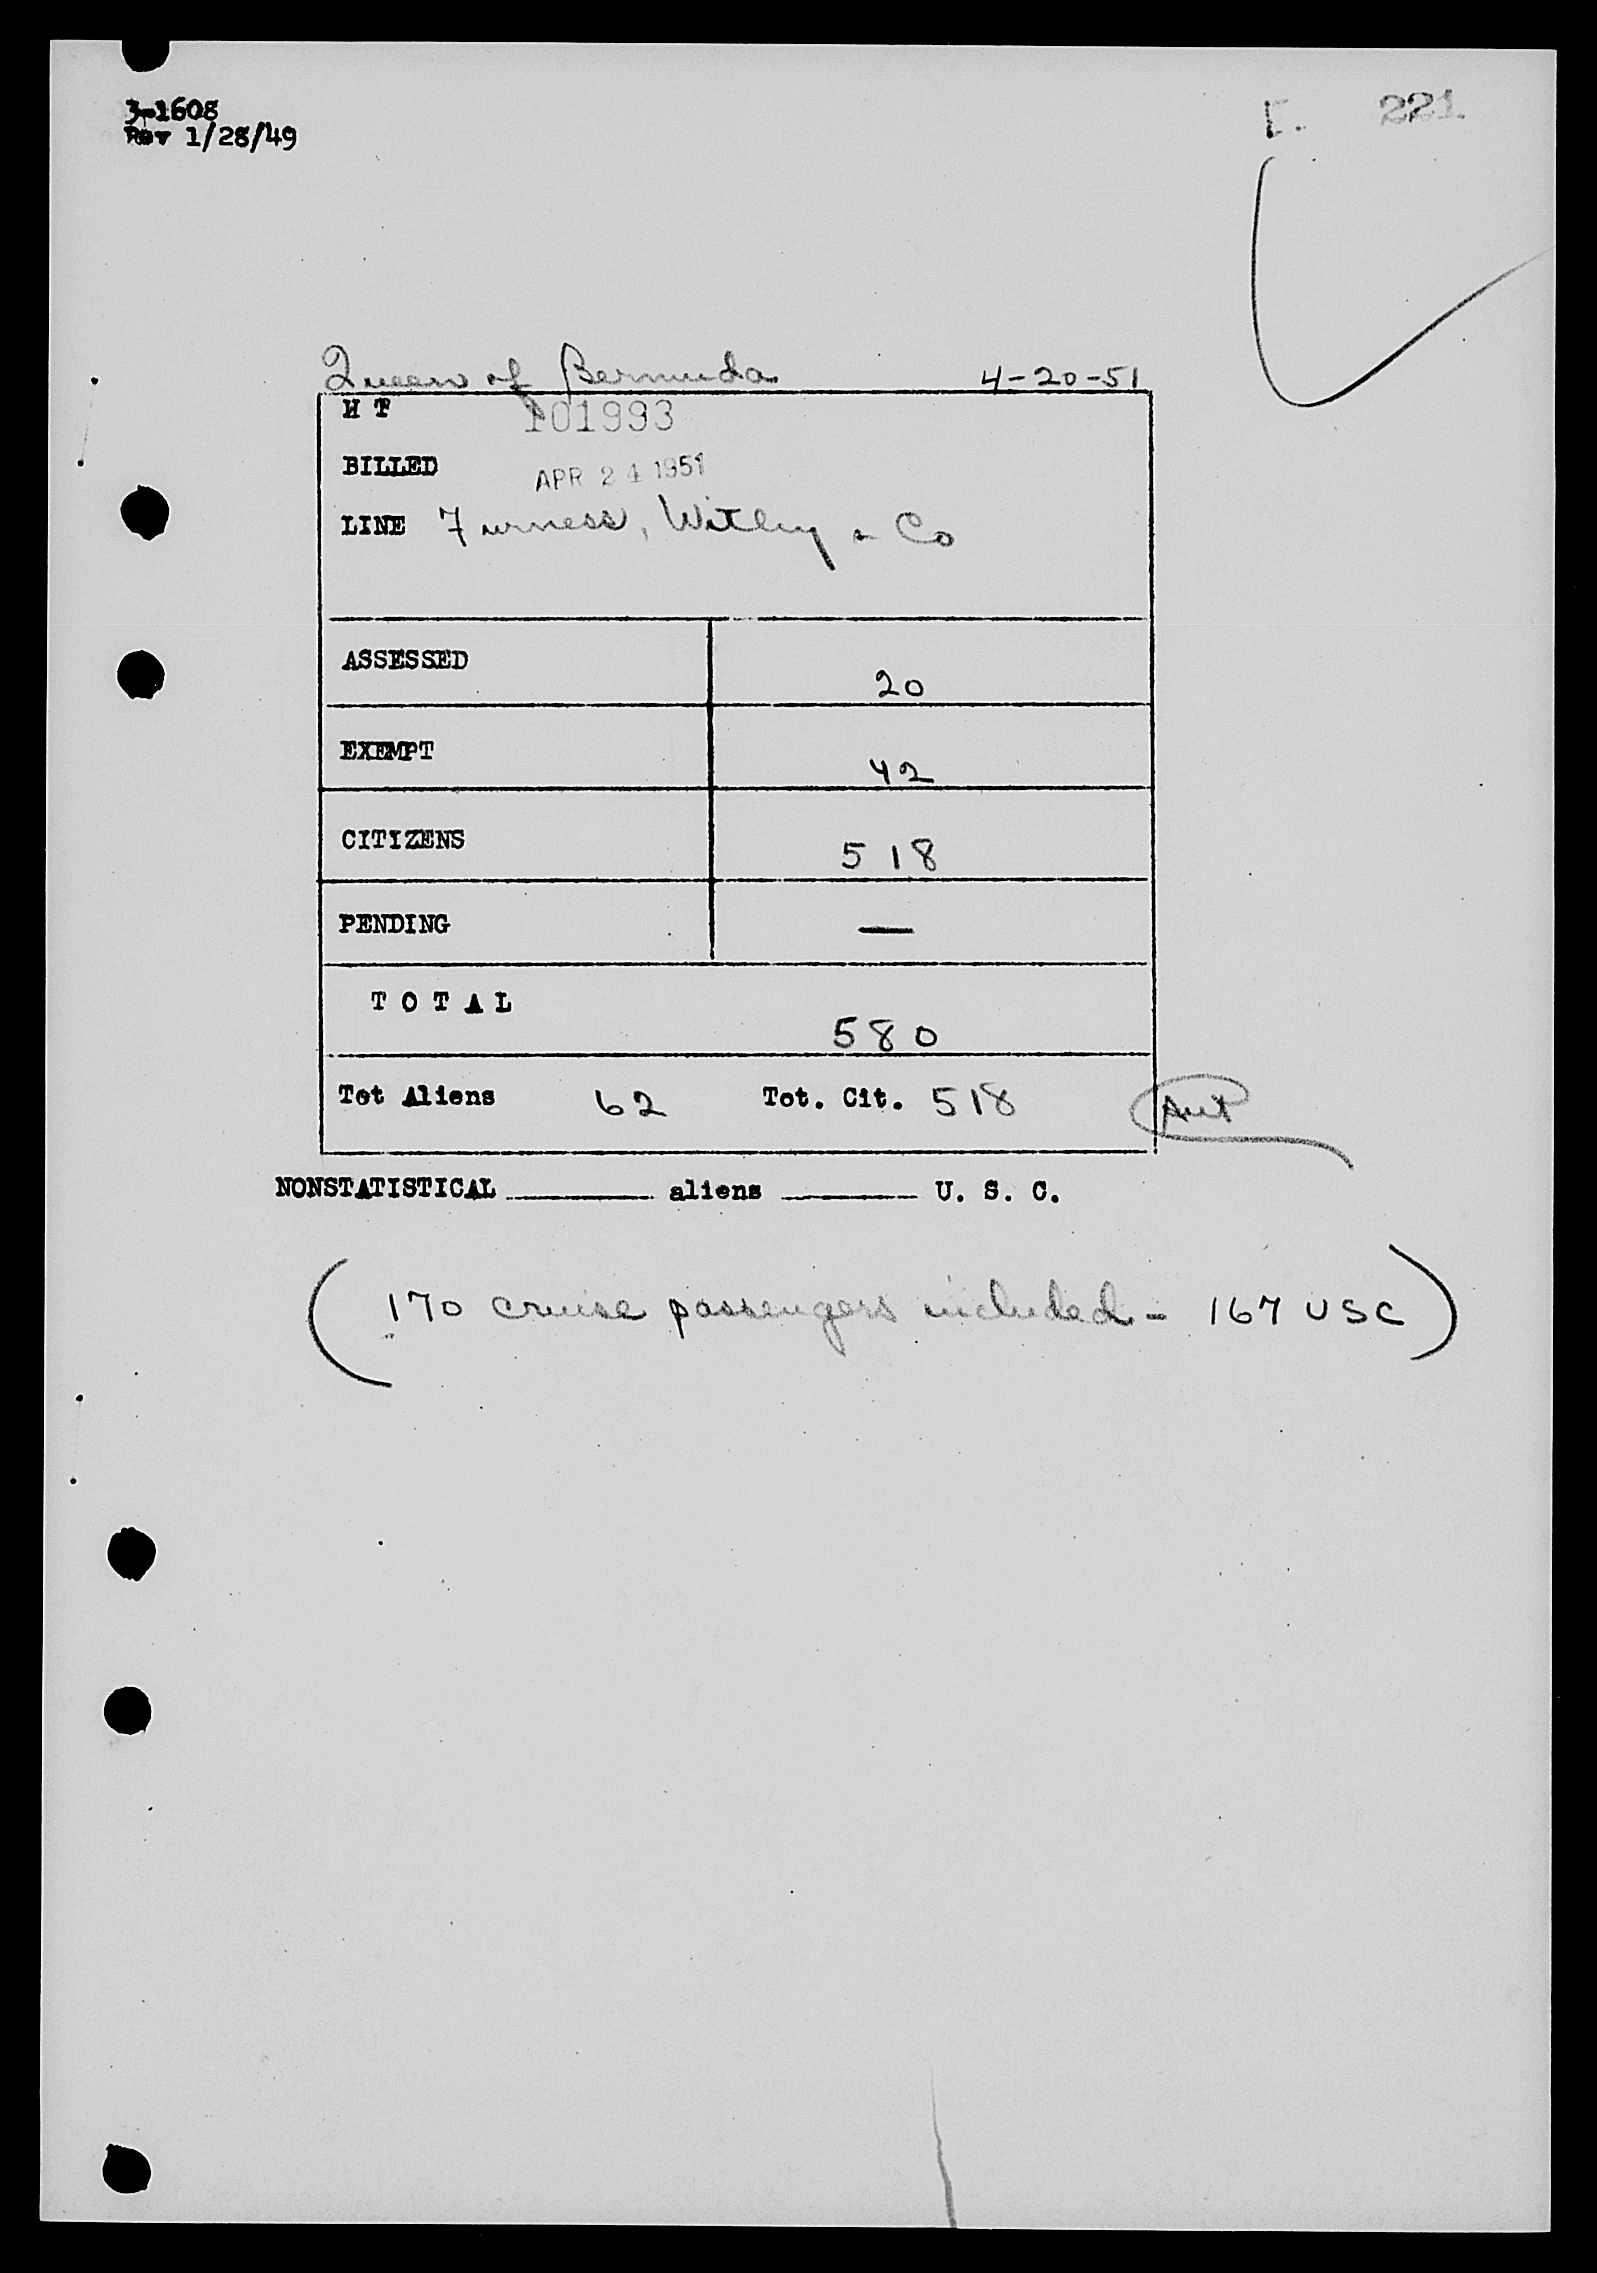 3-1608
Rev 1/28/49
221
Queen of Bermuda 4-20-51
H T 101993
BILLED APR 24 1951
LINE Furness, Withy & Co
ASSESSED 20
EXEMPT 42
CITIZENS 518
PENDING —
TOTAL 580
Tot Aliens 62 Tot. Cit. 518
NONSTATISTICAL ______ aliens ______ U. S. C.
(170 cruise passengers included - 167 USC)